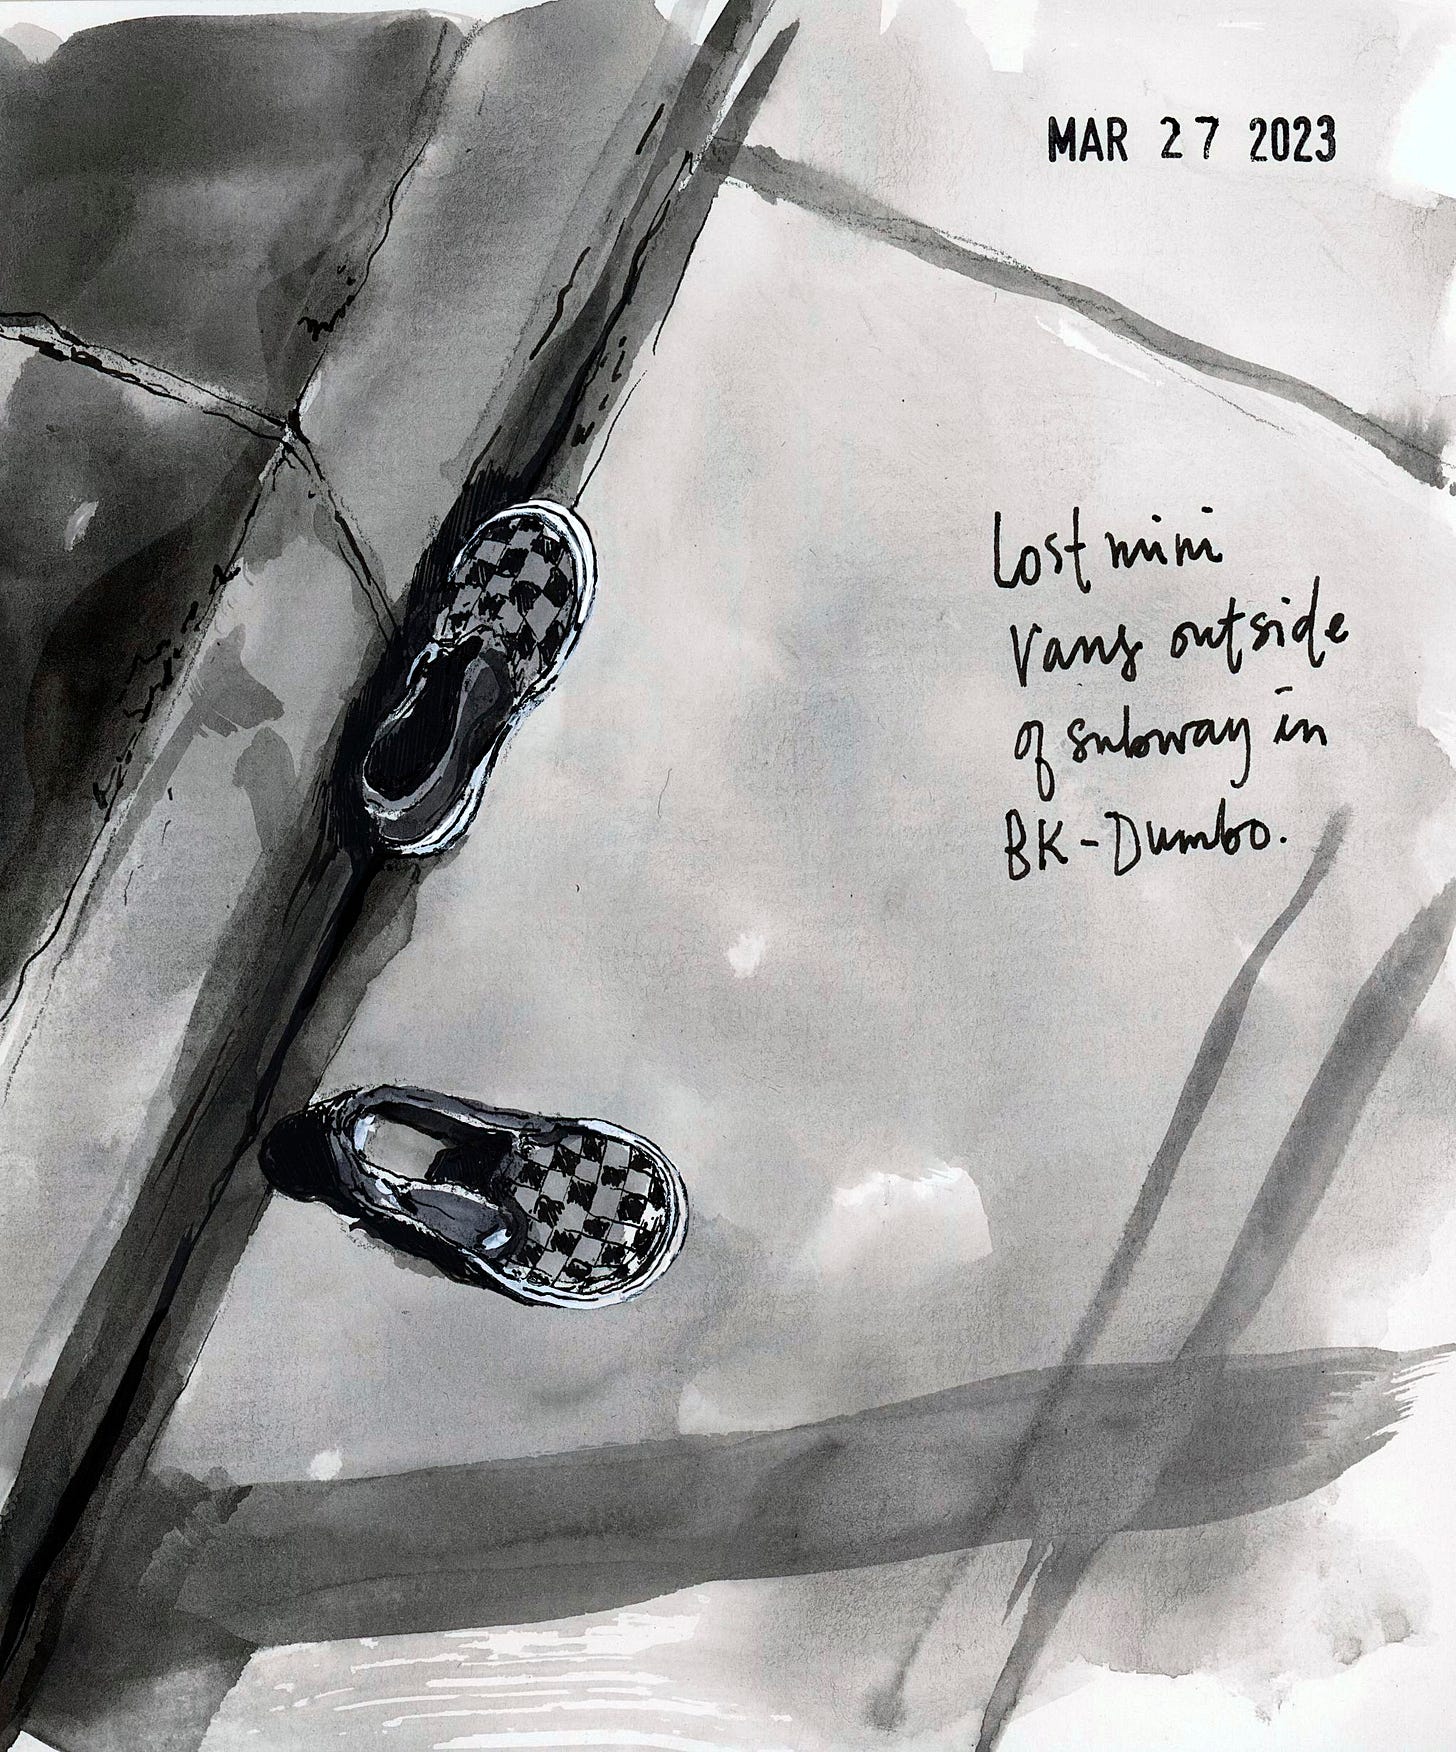 MAR 27 2023
Lost mini
Vans outside
of subway in
BK-Dumbo.